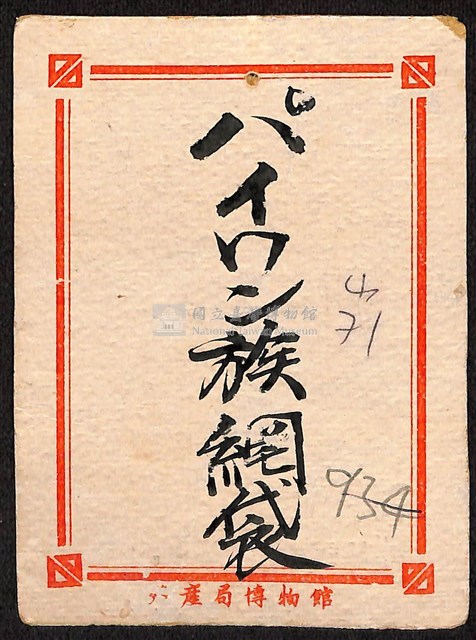 パイワン族網袋
71
934
産局博物館
國立臺灣博物館
National Taiwan Museum